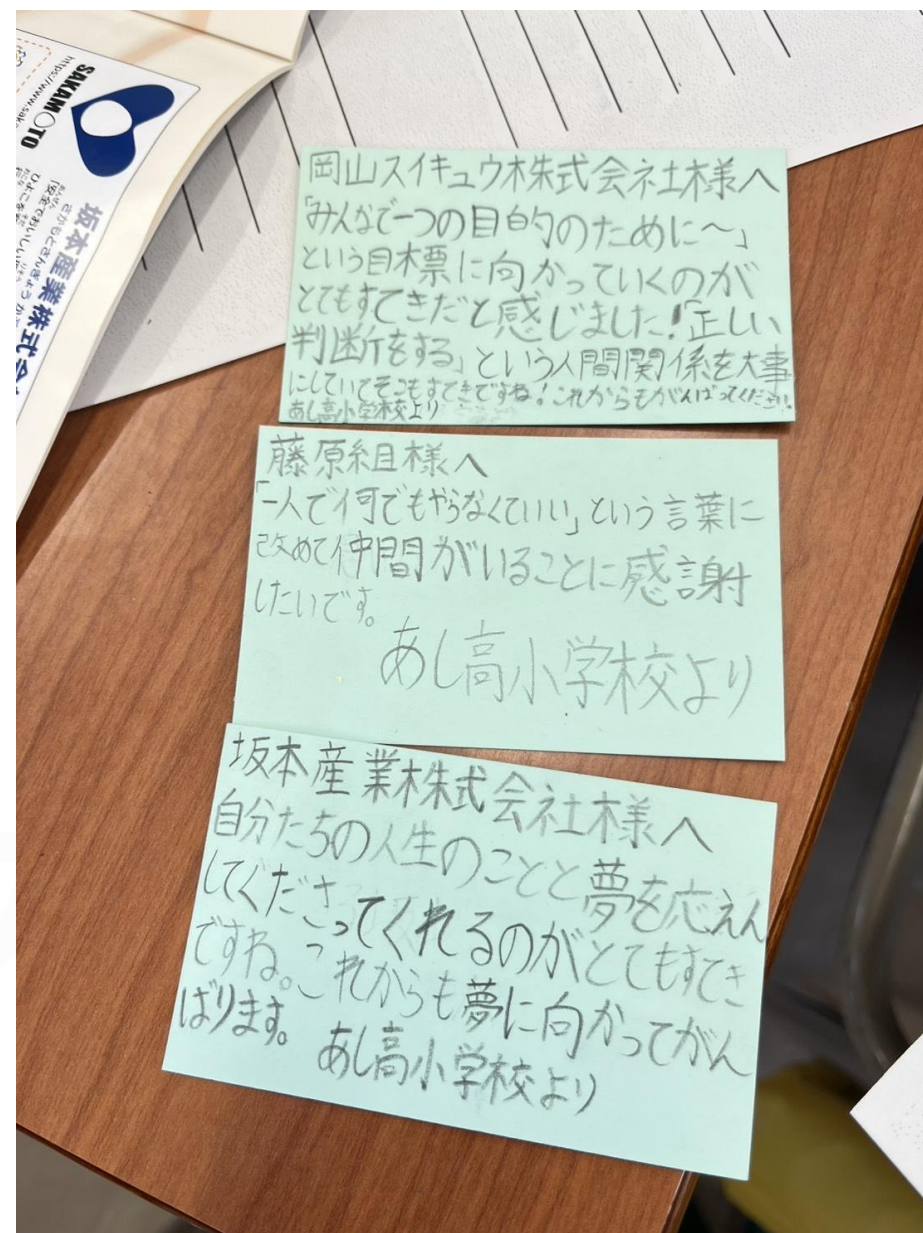 SAKAMOTO
https://www.saka
坂本産業株式会
さかもとさんぎょうか
岡山スイキュウ株式会社様へ
「みんなで一つの目的のために～」
という目標に向かっていくのが
とてもすてきだと感じました!「正しい
判断をする」という人間関係を大事
にしていてそこもすてきですね!これからもがんばってください!
あし高小学校より
藤原組様へ
「一人で何でもやらなくていい」という言葉に
改めて仲間がいることに感謝
したいです。
あし高小学校より
坂本産業株式会社様へ
自分たちの人生のことと夢を応えん
してくださってくれるのがとてもすてき
ですね。これからも夢に向かってがん
ばります。
あし高小学校より